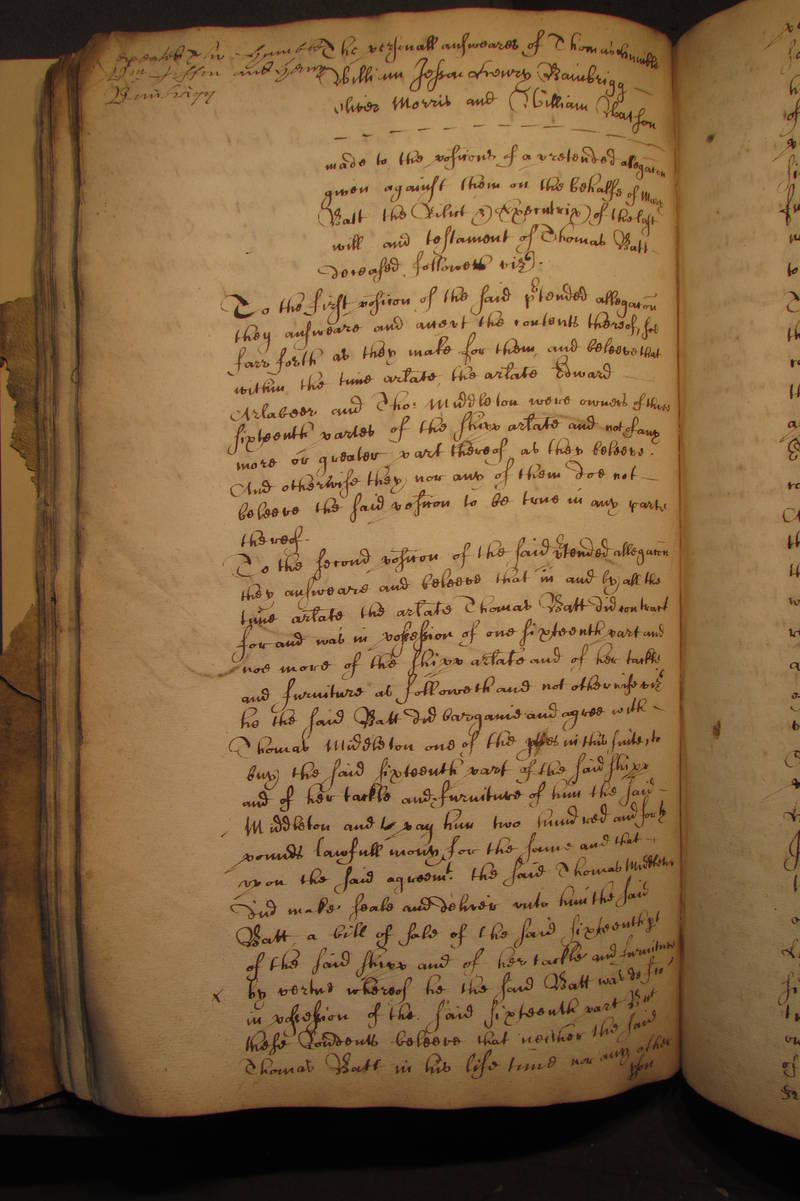 The personall answeares of Thomas Humble
William Jesson Henry Bainbrigg
Oliver Morris and William Watson
made to the positions of a pretended allegacon
given against them on the behalfe of Mary
Batt the Relict & Executrix of the last
will and testament of Thomas Batt
deceased followeth vizt.
To the first position of the said prtended allegacon
they answeare and averr the contents thereof, soe
farr forth as they make for them, and beleeve that
within the time arlate the arlate Edward
and Tho: Middleton were owners of three
sixteenth partes of the shipp arlate and not of any
more or greater part thereof as they beleeve.
And otherwise they nor any of them doe not
beleeve the said position to be true in any parte
thereof.
To the second position of the said prtended allegacon
they answeare and beleeve that in and by all the
time arlate the arlate Thomas Batt did contract
for and was in possession of one sixteenth part and
noe more of the shipp arlate and of her tackle
and furniture as followeth and not otherwise vizt
he the said Batt did bargaine and agree with
Thomas Middleton one of the in this suite, to
buy the said sixteenth part of the said shipp
and of her tackle and furniture of him the said
Middleton and to pay him two hundred and forty
pounds lawfull mony for the same and that
upon the said agreemt. the said Thomas Middleton
did make seale and deliver unto him the said
Batt a bill of sale of the said sixteenth pt
of the said shipp and of her tackle and furniture
by vertue whereof he the said Batt was
in possession of the said sixteenth part But
these Rondents beleeve that neither the said
Thomas Batt in his life time nor any other